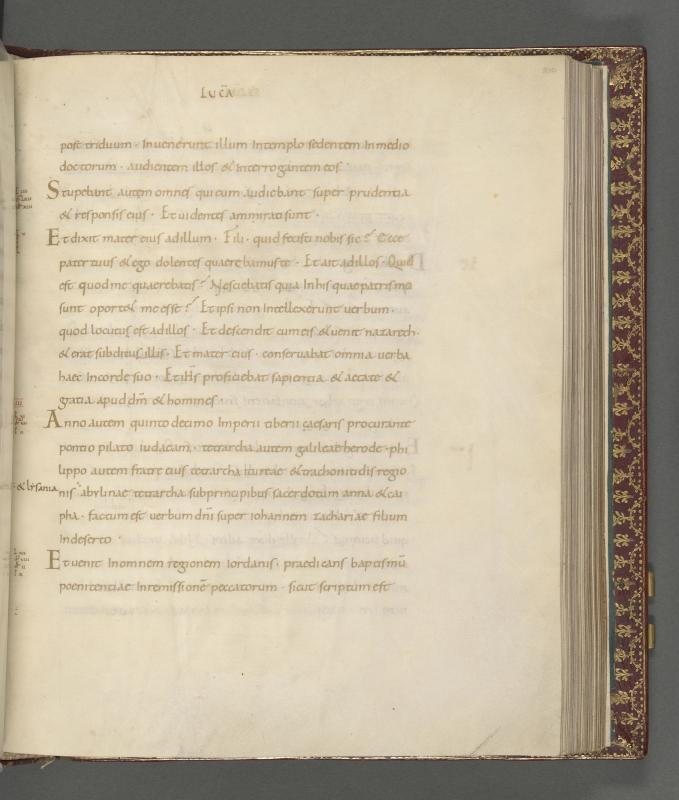 LUCĀ
post triduum · Invenerunt illum Intemplo sedentem Inmedio
doctorum · audientem illos & Interrogantem eos ·
Stupebant autem omnes qui eum audiebant super prudentia
& responsis eius · Et videntes ammirati sunt ·
Et dixit mater eius adillum · Fili · quid fecisti nobis sic? Ecce
pater tuus & ego dolentes quaerebamus te · Et ait adillos · Quid
est quod me quaerebatis? Nesciebatis quia Inhis quae patris mei
sunt oport& me esse? Et ipsi non Intellexerunt verbum ·
quod locutus est adillos · Et descendit cum eis & venit nazareth ·
& erat subditus illis · Et mater eius · conservabat omnia verba
haec Incorde suo · Et ihs proficiebat sapientia & aetate &
gratia apud dm & homines ·
Anno autem quinto decimo Imperii tiberii caesaris procurante
pontio pilato iudaeam · tetrarcha autem galileae herode · phi
lippo autem fratre eius tetrarcha itureae & trachonitidis regio
& lysania
nis abylinae tetrarcha subprincipibus sacerdotum anna & cai
pha · factum est verbum dni super iohannem zachariae filium
Indeserto ·
Et venit Inomnem regionem iordanis · praedicans baptismū
poenitentiae Inremissionē peccatorum · sicut scriptum est